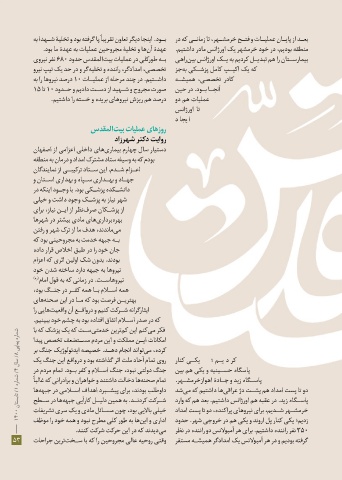 بعد از پایان عملیات و فتح خرمشهر، تا زمانی که در
منطقه بودیم، در خود خرمشهر یک اورژانس مادر داشتیم.
بیمارستان را هم تبدیل کردیم به یک اورژانس بین‌راهی
که یک اکیپ کامل پزشکی به‌جز
کادر تخصصی، همیشه
آنجا بود. در حین
عملیات هم دو
تا اورژانس
ایجاد
کردیم؛ یکی کنار
پاسگاه حسینیه و یکی هم بین
پاسگاه زید و جادهٔ اهواز‌خرمشهر.
دو تا پست امداد هم پشت دژ عراقی‌ها داشتیم که می‌شد
پاسگاه زید. در عقبه هم اورژانس داشتیم. بعد هم که وارد
خرمشهر شدیم، برای نیروهای پراکنده، دو تا پست امداد
زدیم؛ یکی کنار پل اروند و یکی هم در خروجی شهر. حدود
۳۵۰ نفر راننده داشتیم. برای هر آمبولانس دو راننده در نظر
گرفته بودیم و در هر آمبولانس یک امدادگر همیشه مستقر
بود. اینجا دیگر تعاون تقریباً پا گرفته بود و تخلیهٔ شهدا به
عهدهٔ آن‌ها و تخلیهٔ مجروحین عملیات به عهدهٔ ما بود.
به طور‌کلی در عملیات بیت‌المقدس حدود ۶۸۰ نفر نیروی
تخصصی، امدادگر، راننده و تخلیه‌گر و در حد یک تیپ نیرو
داشتیم. در چند مرحله از عملیات ۱۰ درصد نیروها را به
صورت مجروح و شهید از دست دادیم و حدود ۱۰ تا ۱۵
درصد هم ریزش نیروهای بریده و خسته را داشتیم.
روزهای عملیات بیت‌المقدس
روایت دکتر شهرزاد
دستیار سال چهارم بیماری‌های داخلی اعزامی از اصفهان
بودم که به وسیله ستاد مشترک امداد و درمان به منطقه
اعزام شدم. این ستاد ترکیبی از نمایندگان
جهاد و بهداری سپاه و بهداری استان و
دانشکده پزشکی بود. با وجود اینکه در
شهر نیاز به پزشک وجود داشت و خیلی
از پزشکان صرف‌نظر از این نیاز، برای
بهره‌برداری‌های مادی بیشتر در شهرها
می‌ماندند، هدف ما از ترک شهر و رفتن
به جبهه خدمت به مجروحینی بود که
جان خود را در طبق اخلاص قرار داده
بودند. بدون شک اولین اثری که اعزام
نیروها به جبهه دارد ساخته شدن خود
نیروهاست. در زمانی که به قول امام
همه اسلام با همه کفر در جنگ بود،
بهترین فرصت بود که ما در این صحنه‌های
ایثارگرانه شرکت کنیم و در واقع آن واقعیت‌هایی را
که در صدر اسلام اتفاق افتاده بود به چشم خود ببینیم.
فکر می‌کنم این کم‌ترین خدمتی‌ست که یک پزشک که با
امکانات این مملکت و این مردم مستضعف تخصص پیدا
کرده، می‌تواند انجام دهند. خصیصه ایدئولوژیک جنگ بر
روی تمام آحاد ملت اثر گذاشته بود و در واقع این جنگ یک
جنگ دولتی نبود، جنگ اسلام و کفر بود. تمام مردم در
تمام صحنه‌ها دخالت داشتند و خواهران و برادرانی که غالباً
داوطلب بودند، برای پیشبرد اهداف اسلامی در جبهه‌ها
شرکت کردند. به همین دلیل کارایی جبهه‌ها در سطح
خیلی بالایی بود، چون مسائل مادی و یک سری تشریفات
اداری و این‌ها به طور کلی مطرح نبود و همه خود را موظف
می‌دیدند که در این حرکت شرکت کنند.
وقتی روحیه عالی مجروحین را که با سخت‌ترین جراحات
۵۳